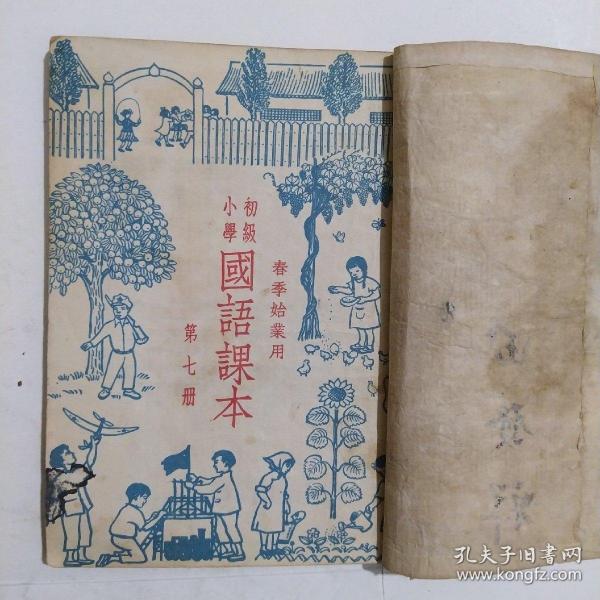 初級
小學
國語課本
春季始業用
第七册
孔夫子旧书网
www.kongfz.com